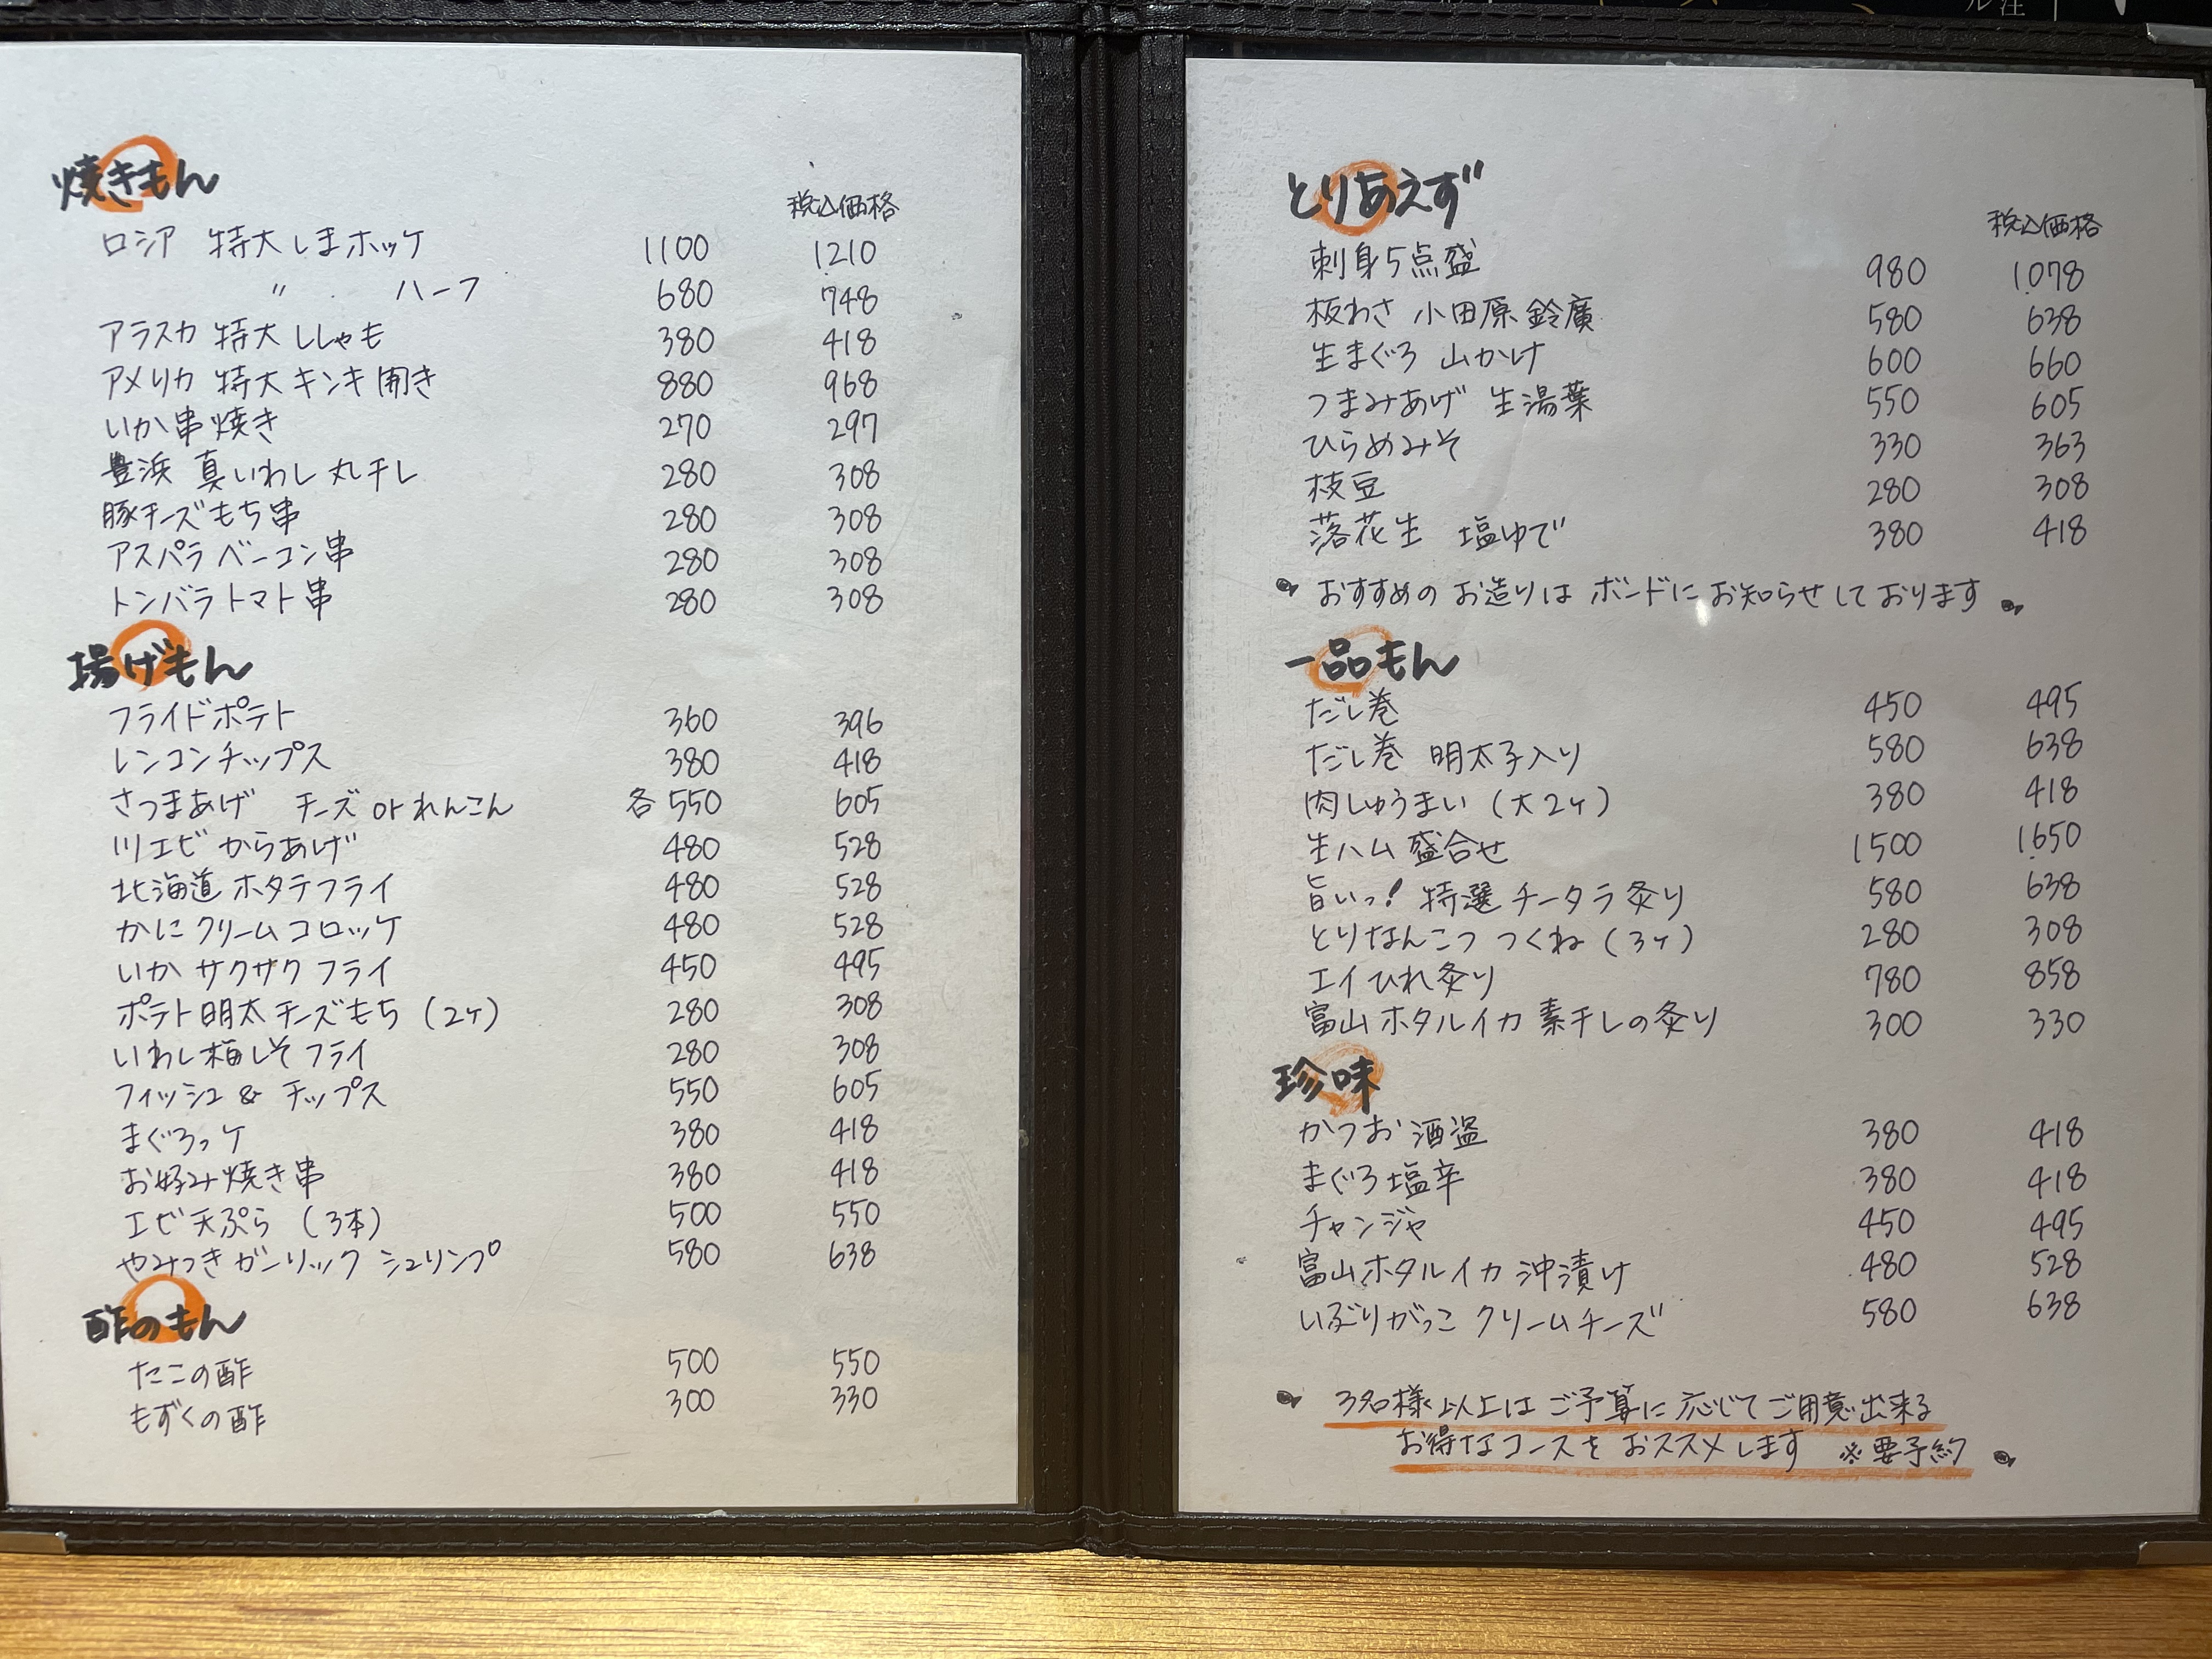 焼きもん
税込価格
ロシア 特大しまホッケ 1100 1210
〃 ハーフ 680 748
アラスカ 特大ししゃも 380 418
アメリカ 特大キンキ開き 880 968
いか串焼き 270 297
豊浜 真いわし丸干し 280 308
豚チーズもち串 280 308
アスパラベーコン串 280 308
トンバラトマト串 280 308
揚げもん
フライドポテト 360 396
レンコンチップス 380 418
さつまあげ チーズorれんこん 各550 605
川エビからあげ 480 528
北海道ホタテフライ 480 528
かにクリームコロッケ 480 528
いかサクサクフライ 450 495
ポテト明太チーズもち(2ヶ) 280 308
いわし梅しそフライ 280 308
フィッシュ&チップス 550 605
まぐろっケ 380 418
お好み焼き串 380 418
エビ天ぷら(3本) 500 550
やみつきガーリックシュリンプ 580 638
酢のもん
たこの酢 500 550
もずくの酢 300 330
とりあえず
税込価格
刺身5点盛 980 1078
板わさ 小田原鈴廣 580 638
生まぐろ 山かけ 600 660
つまみあげ 生湯葉 550 605
ひらめみそ 330 363
枝豆 280 308
落花生 塩ゆで 380 418
おすすめのお造りはボードにお知らせしております
一品もん
だし巻 450 495
だし巻 明太子入り 580 638
肉しゅうまい(大2ヶ) 380 418
生ハム盛合せ 1500 1650
旨いっ!特選チータラ炙り 580 638
とりなんこつつくね(3ヶ) 280 308
エイひれ炙り 780 858
富山ホタルイカ素干しの炙り 300 330
珍味
かつお酒盗 380 418
まぐろ塩辛 380 418
チャンジャ 450 495
富山ホタルイカ沖漬け 480 528
いぶりがっこクリームチーズ 580 638
3名様以上はご予算に応じてご用意出来る
お得なコースをおススメします ※要予約